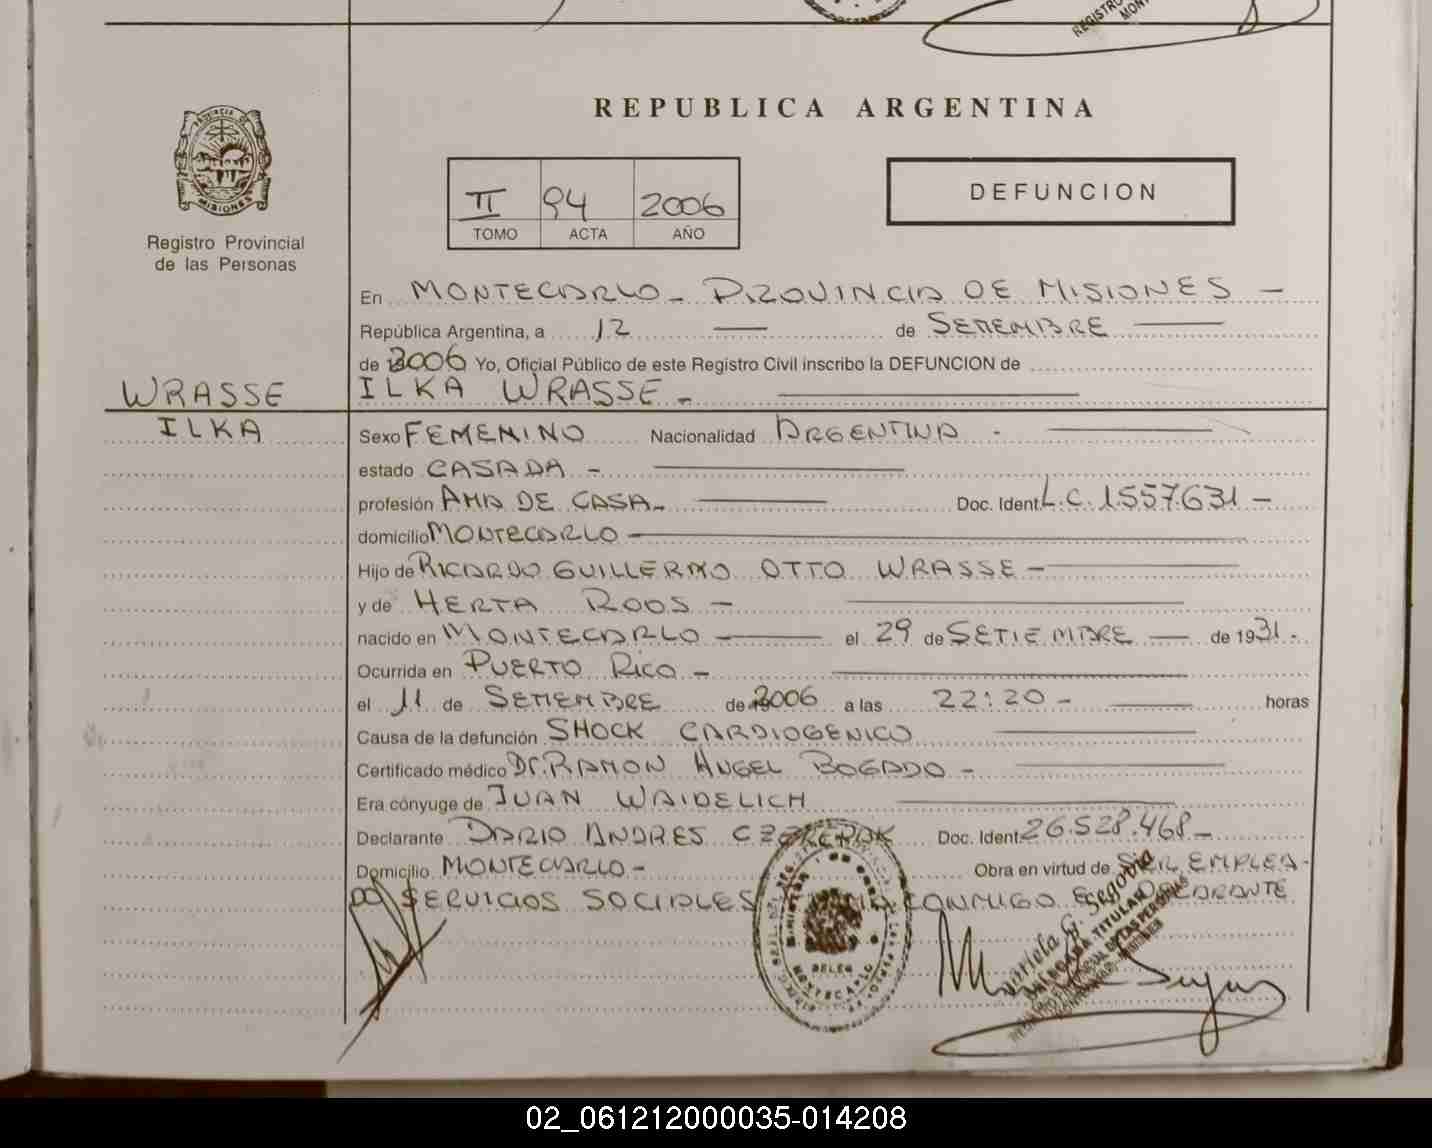 REPUBLICA ARGENTINA
II 94 2006
TOMO ACTA AÑO
DEFUNCION
PROVINCIA DE
MISIONES
Registro Provincial
de las Personas
En MONTECARLO - PROVINCIA DE MISIONES -
República Argentina, a 12 — de SETIEMBRE —
de 2006 Yo, Oficial Público de este Registro Civil inscribo la DEFUNCION de
WRASSE
ILKA WRASSE -
ILKA
Sexo FEMENINO Nacionalidad ARGENTINA -
estado CASADA -
profesión AMA DE CASA - Doc. Ident. L.C. 1.557.631 -
domicilio MONTECARLO -
Hijo de RICARDO GUILLERMO OTTO WRASSE -
y de HERTA ROOS -
nacido en MONTECARLO - el 29 de SETIEMBRE — de 1931 -
Ocurrida en PUERTO RICO -
el 11 de SETIEMBRE de 2006 a las 22:20 - horas
Causa de la defunción SHOCK CARDIOGENICO
Certificado médico Dr. RAMON ANGEL BOGADO -
Era cónyuge de JUAN WAIDELICH
Declarante DARIO ANDRES Doc. Ident. 26.528.468 -
Domicilio MONTECARLO - Obra en virtud de SER EMPLEA-
DO SERVICIOS SOCIALES CONMIGO EL DECLARANTE
Mariela G. Segovia
DELEGADA TITULAR
02_061212000035-014208